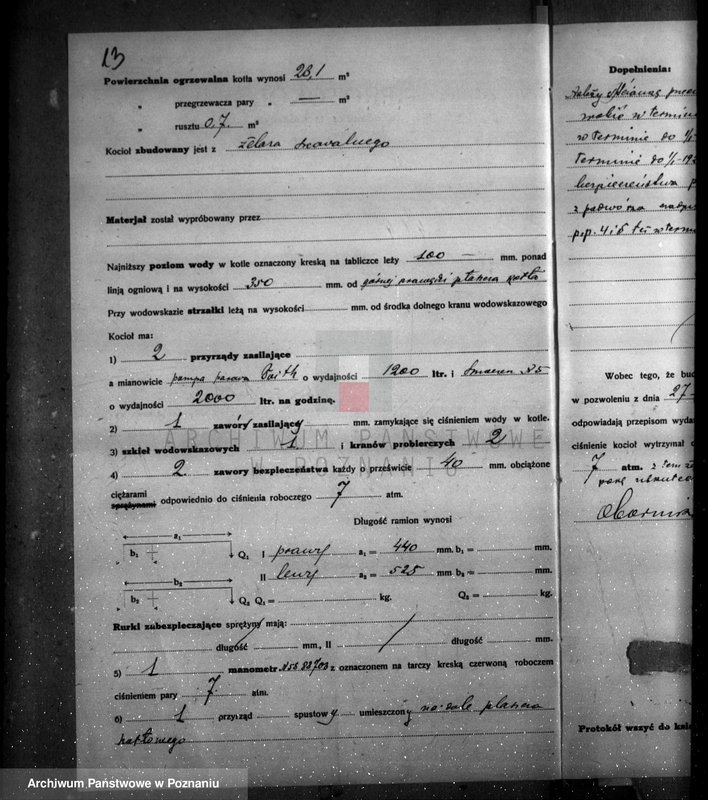 13
Powierzchnia ogrzewalna kotła wynosi 28,1 m²
„ przegrzewacza pary „ — m²
„ rusztu 0.7. m²
Kocioł zbudowany jest z żelaza
Materjał został wypróbowany przez
Najniższy poziom wody w kotle oznaczony kreską na tabliczce leży 100 — mm. ponad
linją ogniową i na wysokości 350 mm. od górnej krawędzi płaszcza kotła
Przy wodowskazie strzałki leżą na wysokości mm. od środka dolnego kranu wodowskazowego
Kocioł ma:
1) 2 przyrządy zasilające
a mianowicie pompa parowa o wydajności 1200 ltr. i
o wydajności 2000 ltr. na godzinę.
2) 1 zawóry zasilający mm. zamykające się ciśnieniem wody w kotle.
3) szkieł wodowskazowych 1 i kranów probierczych 2
4) 2 zawory bezpieczeństwa każdy o prześwicie 40 mm. obciążone
ciężarami
sprężynami odpowiednio do ciśnienia roboczego 7 atm.
Długość ramion wynosi
a₁ b₁ Q₁ I prawy a₁ = 440 mm. b₁ = mm.
II lewy a₂ = 525 mm. b₂ = mm.
b₂ b₂ Q₂ Q₁ = kg. Q₂ = kg.
Rurki zabezpieczające sprężyny mają:
długość mm., II długość mm.
5) 1 manometr z oznaczonem na tarczy kreską czerwoną roboczem
ciśnieniem pary 7 atm.
6) 1 przyrząd spustowy umieszczony na dole płaszcza
kotłowego
Dopełnienia:
Należy
w terminie
w terminie do
terminie do
bezpieczeństwa
z podwórza
p.p. 4 i 6
Wobec tego, że
w pozwoleniu z dnia 27
odpowiadają przepisom
ciśnienie kocioł wytrzymał
7 atm. z tem
parę
Protokół wszyć do
ARCHIWUM PAŃSTWOWE
W POZNANIU
Archiwum Państwowe w Poznaniu